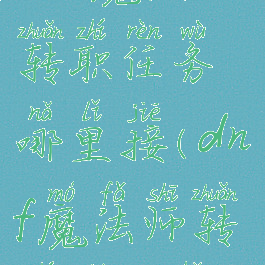 zhuǎn zhí rèn wù
转职任务
nǎ lǐ jiē
哪里接(dn
mó fǎ shī zhuǎn
f魔法师转